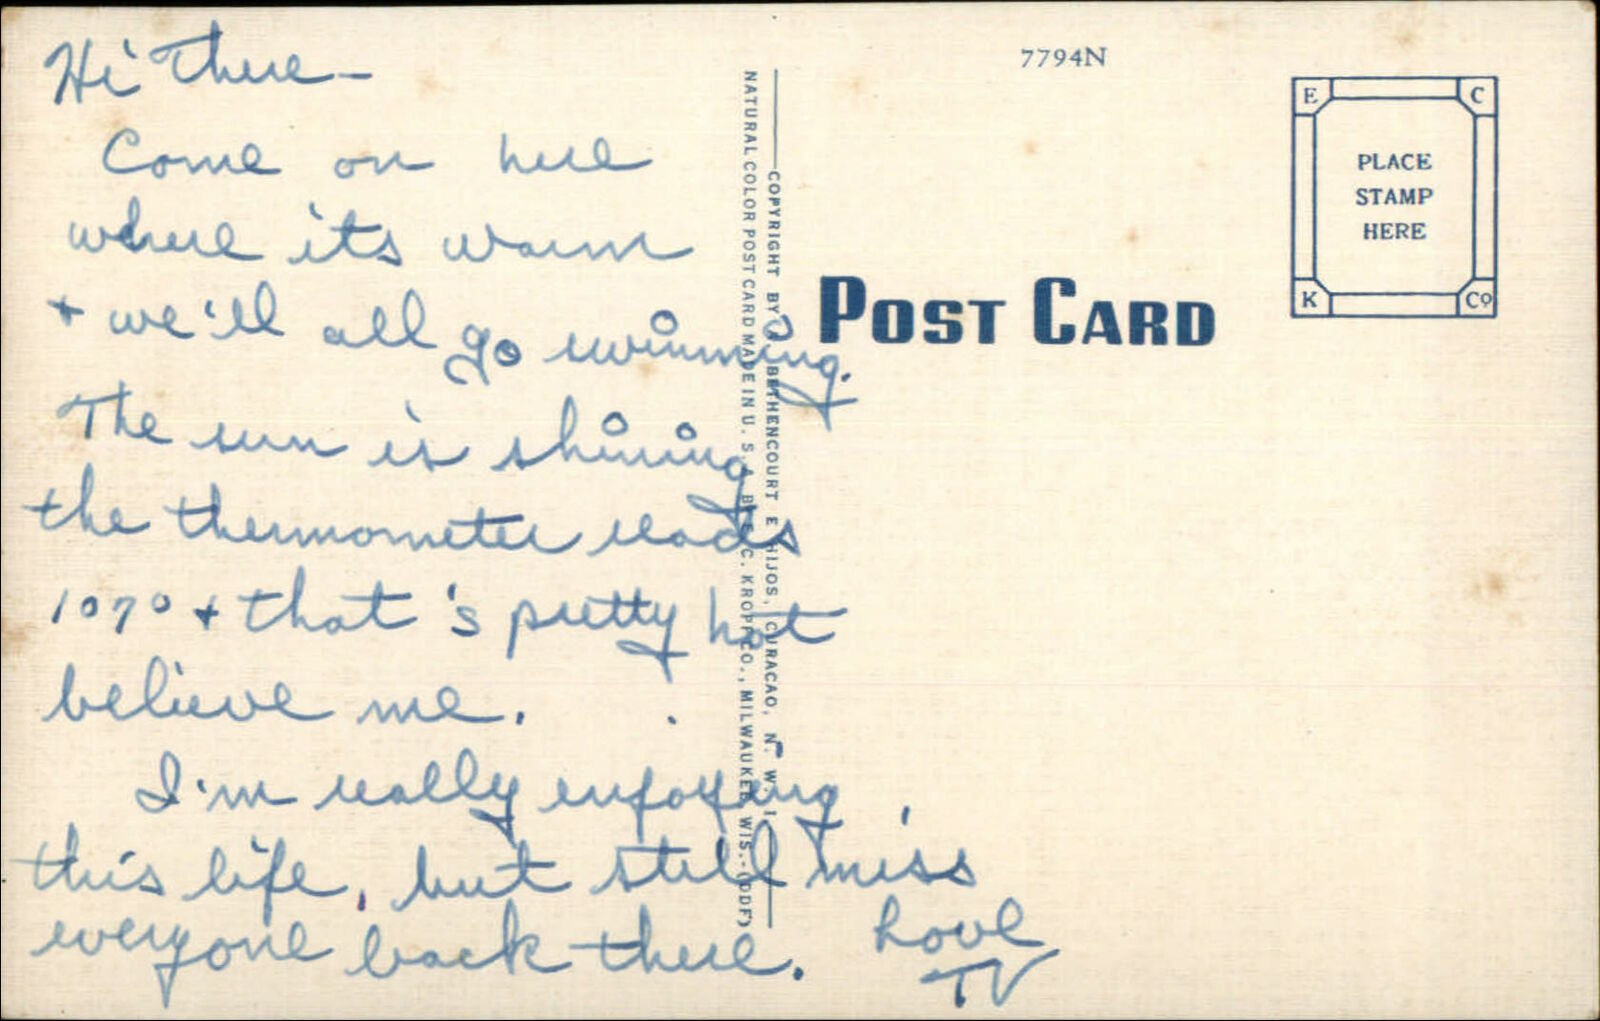 Hi There-
Come on here
where its warm
+ we'll all go swimming.
The sun is shining
the thermometer reads
107° + that's pretty hot
believe me.
I'm really enjoying
this life, but still miss
everyone back there.
Love
TV
NATURAL COLOR POST CARD MADE IN U. S. A. BY E. C. KROPP CO., MILWAUKEE, WIS.-(DDF)
COPYRIGHT BY J. BETHENCOURT E HIJOS, CURACAO, N. W. I.
7794N
POST CARD
E C
PLACE
STAMP
HERE
K Co